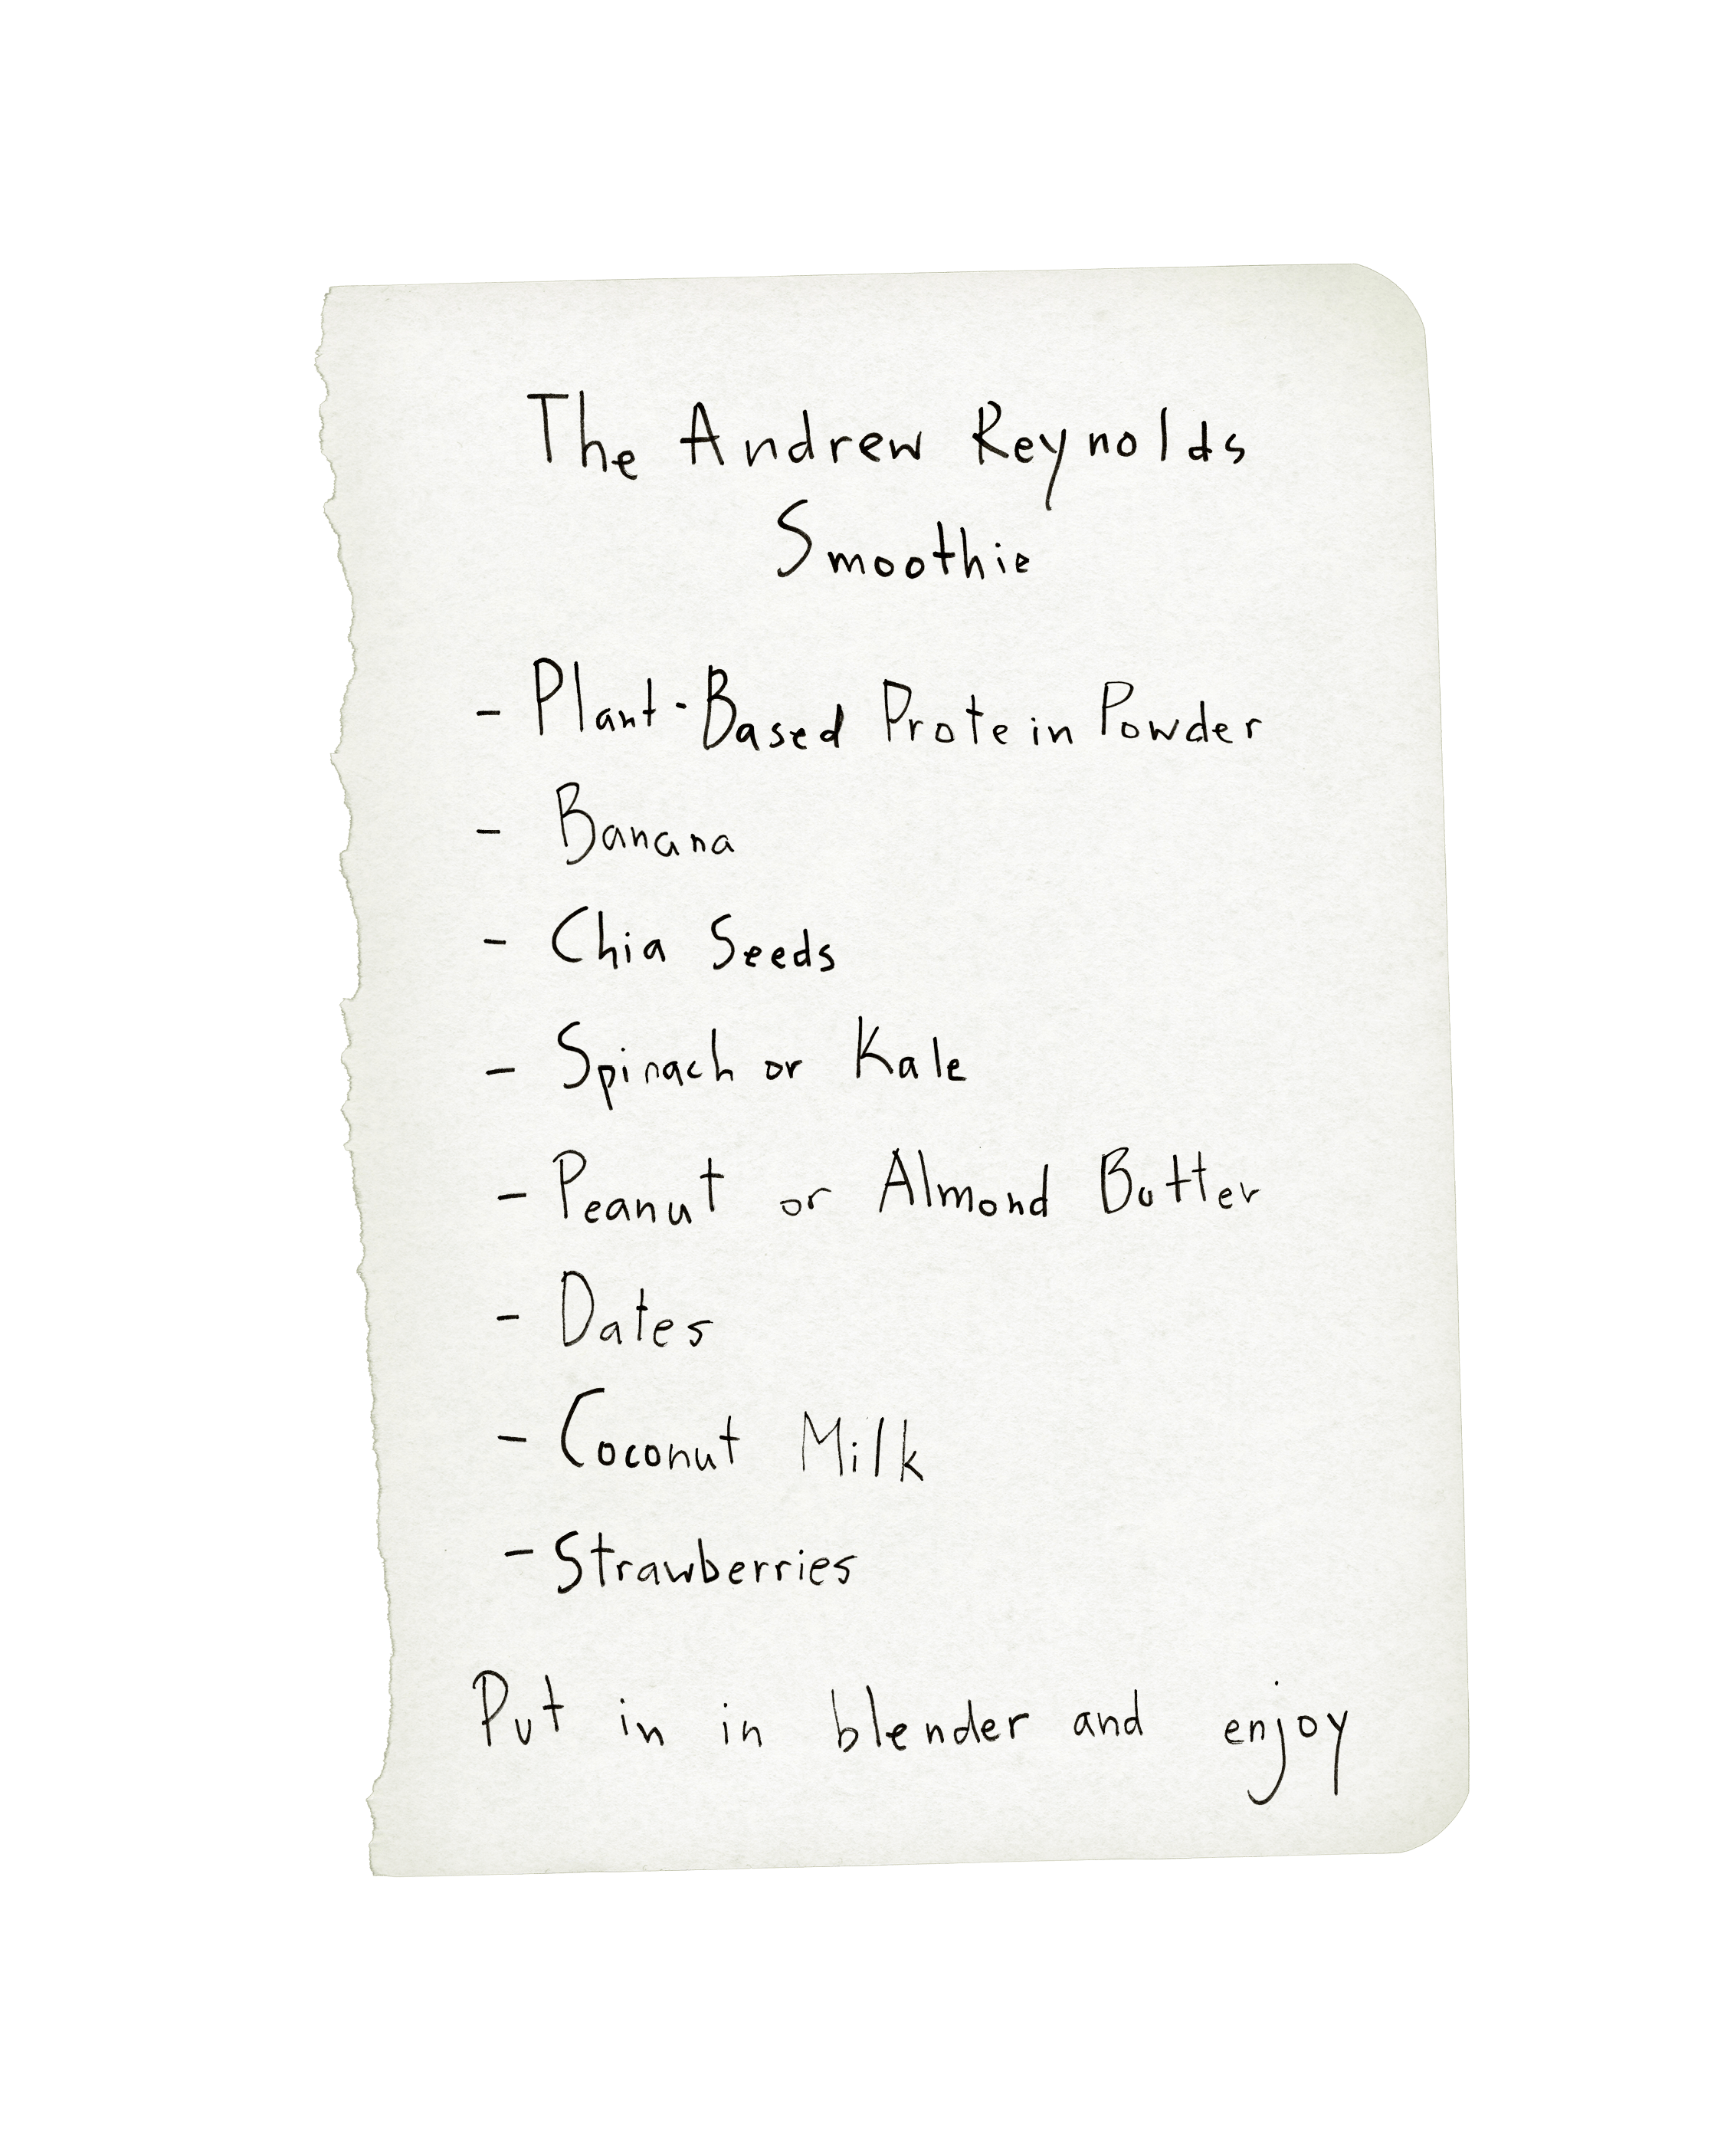 The Andrew Reynolds
Smoothie
- Plant-Based Protein Powder
- Banana
- Chia Seeds
- Spinach or Kale
- Peanut or Almond Butter
- Dates
- Coconut Milk
- Strawberries
Put in in blender and enjoy